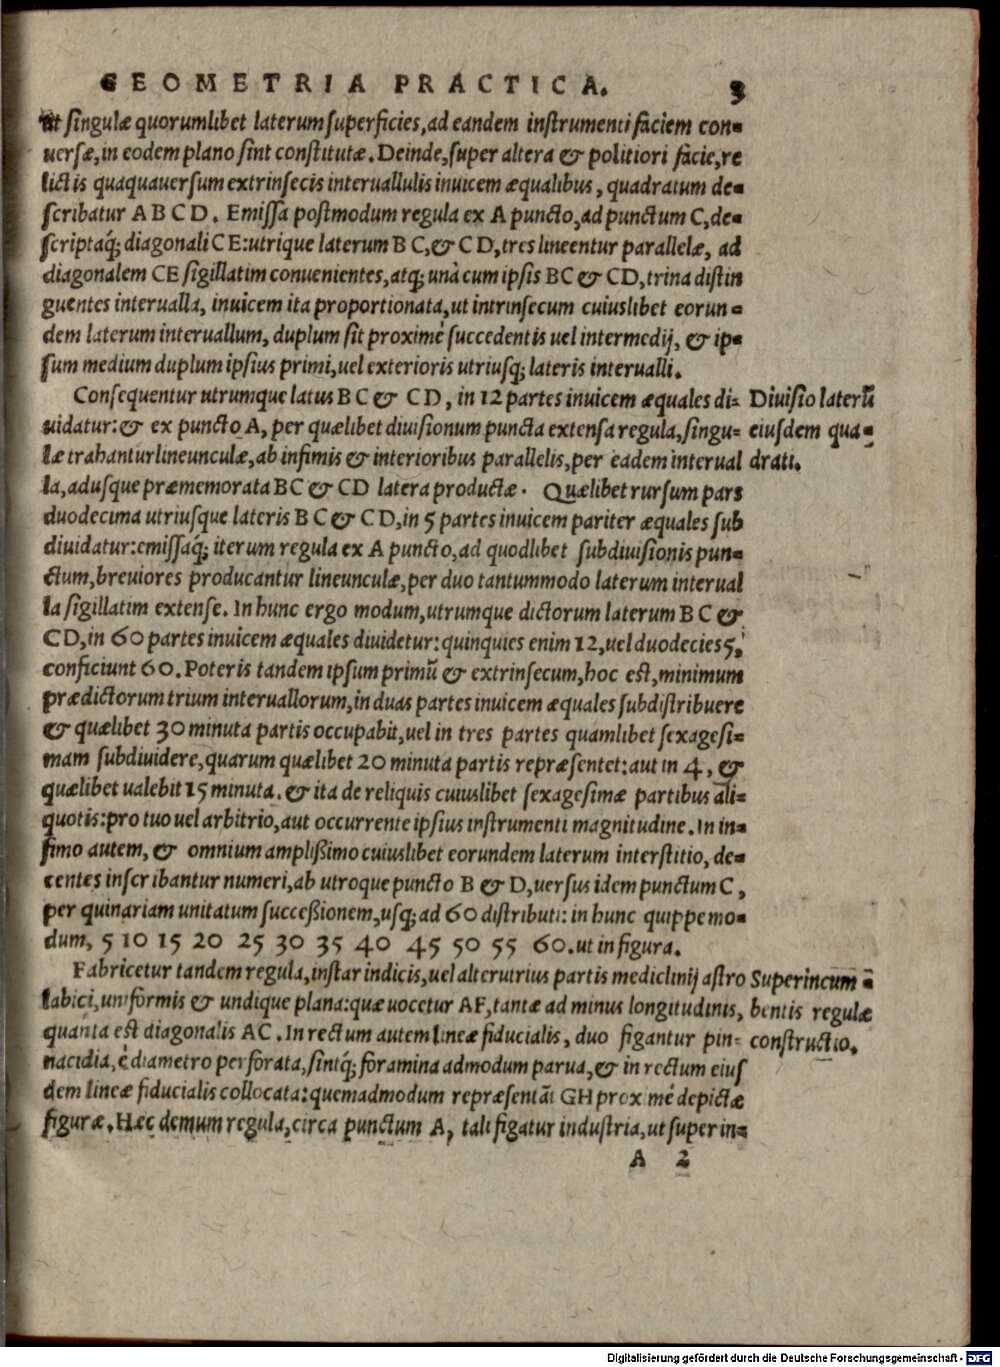 GEOMETRIA PRACTICA. 3
ut singulæ quorumlibet laterum superficies, ad eandem instrumenti faciem con=
uersæ, in eodem plano sint constitutæ. Deinde, super altera & politiori facie, re
lictis quaquauersum extrinsecis interuallulis inuicem æqualibus, quadratum de=
scribatur A B C D. Emissa postmodum regula ex A puncto, ad punctum C, de=
scriptaq́; diagonali C E: utrique laterum B C, & C D, tres lineentur parallelæ, ad
diagonalem CE sigillatim conuenientes, atq; unà cum ipsis BC & CD, trina distin
guentes interualla, inuicem ita proportionata, ut intrinsecum cuiuslibet eorun=
dem laterum interuallum, duplum sit proximè succedentis uel intermedij, & ip=
sum medium duplum ipsius primi, uel exterioris utriusq; lateris interualli.
Consequentur utrumque latus B C & CD, in 12 partes inuicem æquales di= Diuisio laterū
uidatur: & ex puncto A, per quælibet diuisionum puncta extensa regula, singu= eiusdem qua=
læ trahantur lineunculæ, ab infimis & interioribus parallelis, per eadem interual drati.
la, adusque præmemorata BC & CD latera productæ. Quælibet rursum pars
duodecima utriusque lateris B C & C D, in 5 partes inuicem pariter æquales sub
diuidatur: emissaq́; iterum regula ex A puncto, ad quodlibet subdiuisionis pun=
ctum, breuiores producantur lineunculæ, per duo tantummodo laterum interual
la sigillatim extense. In hunc ergo modum, utrumque dictorum laterum B C &
CD, in 60 partes inuicem æquales diuidetur: quinquies enim 12, uel duodecies 5,
conficiunt 60. Poteris tandem ipsum primū & extrinsecum, hoc est, minimum
prædictorum trium interuallorum, in duas partes inuicem æquales subdistribuere
& quælibet 30 minuta partis occupabit, uel in tres partes quamlibet sexagesi=
mam subdiuidere, quarum quælibet 20 minuta partis repræsentet: aut in 4, &
quælibet ualebit 15 minuta. & ita de reliquis cuiuslibet sexagesimæ partibus ali=
quotis: pro tuo uel arbitrio, aut occurrente ipsius instrumenti magnitudine. In in=
fimo autem, & omnium amplißimo cuiuslibet eorundem laterum interstitio, de=
centes inscribantur numeri, ab utroque puncto B & D, uersus idem punctum C,
per quinariam unitatum succeßionem, usq; ad 60 distributi: in hunc quippe mo=
dum, 5 10 15 20 25 30 35 40 45 50 55 60. ut in figura.
Fabricetur tandem regula, instar indicis, uel alterutrius partis mediclinij astro Superincum=
labici, uniformis & undique plana: quæ uocetur AF, tantæ ad minus longitudinis, bentis regulæ
quanta est diagonalis AC. In rectum autem lineæ fiducialis, duo figantur pin= constructio.
nacidia, è diametro perforata, sintq́; foramina admodum parua, & in rectum eius
dem lineæ fiducialis collocata: quemadmodum repræsentāt GH proximè depictæ
figuræ. Hæc demum regula, circa punctum A, tali figatur industria, ut super in=
A 2
Digitalisierung gefördert durch die Deutsche Forschungsgemeinschaft - DFG